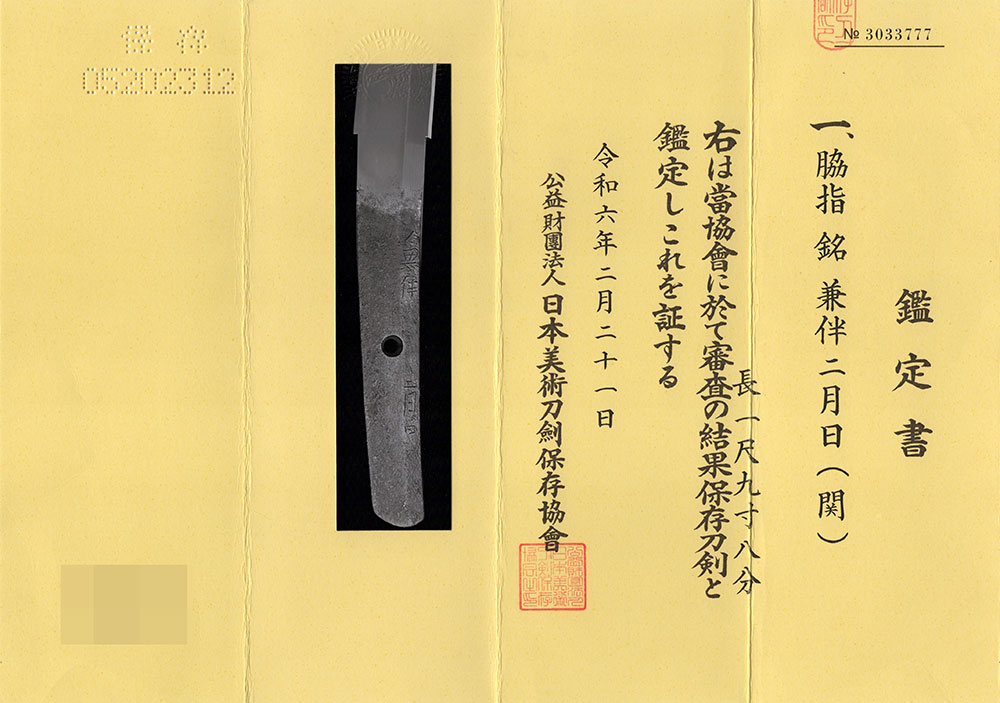 № 3033777
鑑定書
一、脇指 銘 兼伴二月日(関)
長一尺九寸八分
右は當協會に於て審査の結果保存刀剣と
鑑定しこれを証する
令和六年二月二十一日
公益財團法人 日本美術刀劍保存協會
兼伴
二月日
保存
05202312